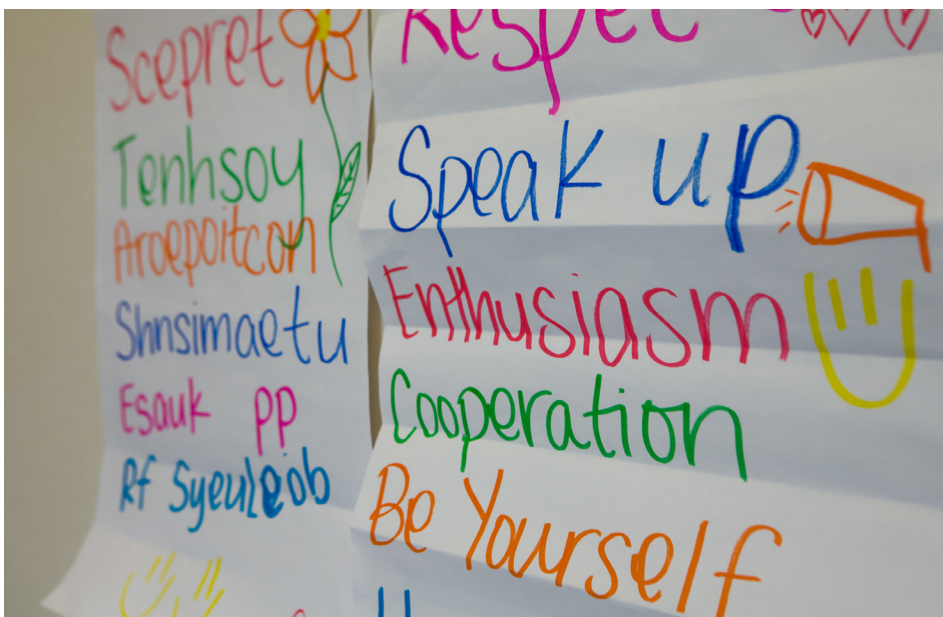 Scepret
Tenhsoy
Aroepoitcon
Shnsimaetu
Esauk pp
Rf Syeuleoib
Respec
Speak up
Enthusiasm
Cooperation
Be Yourself